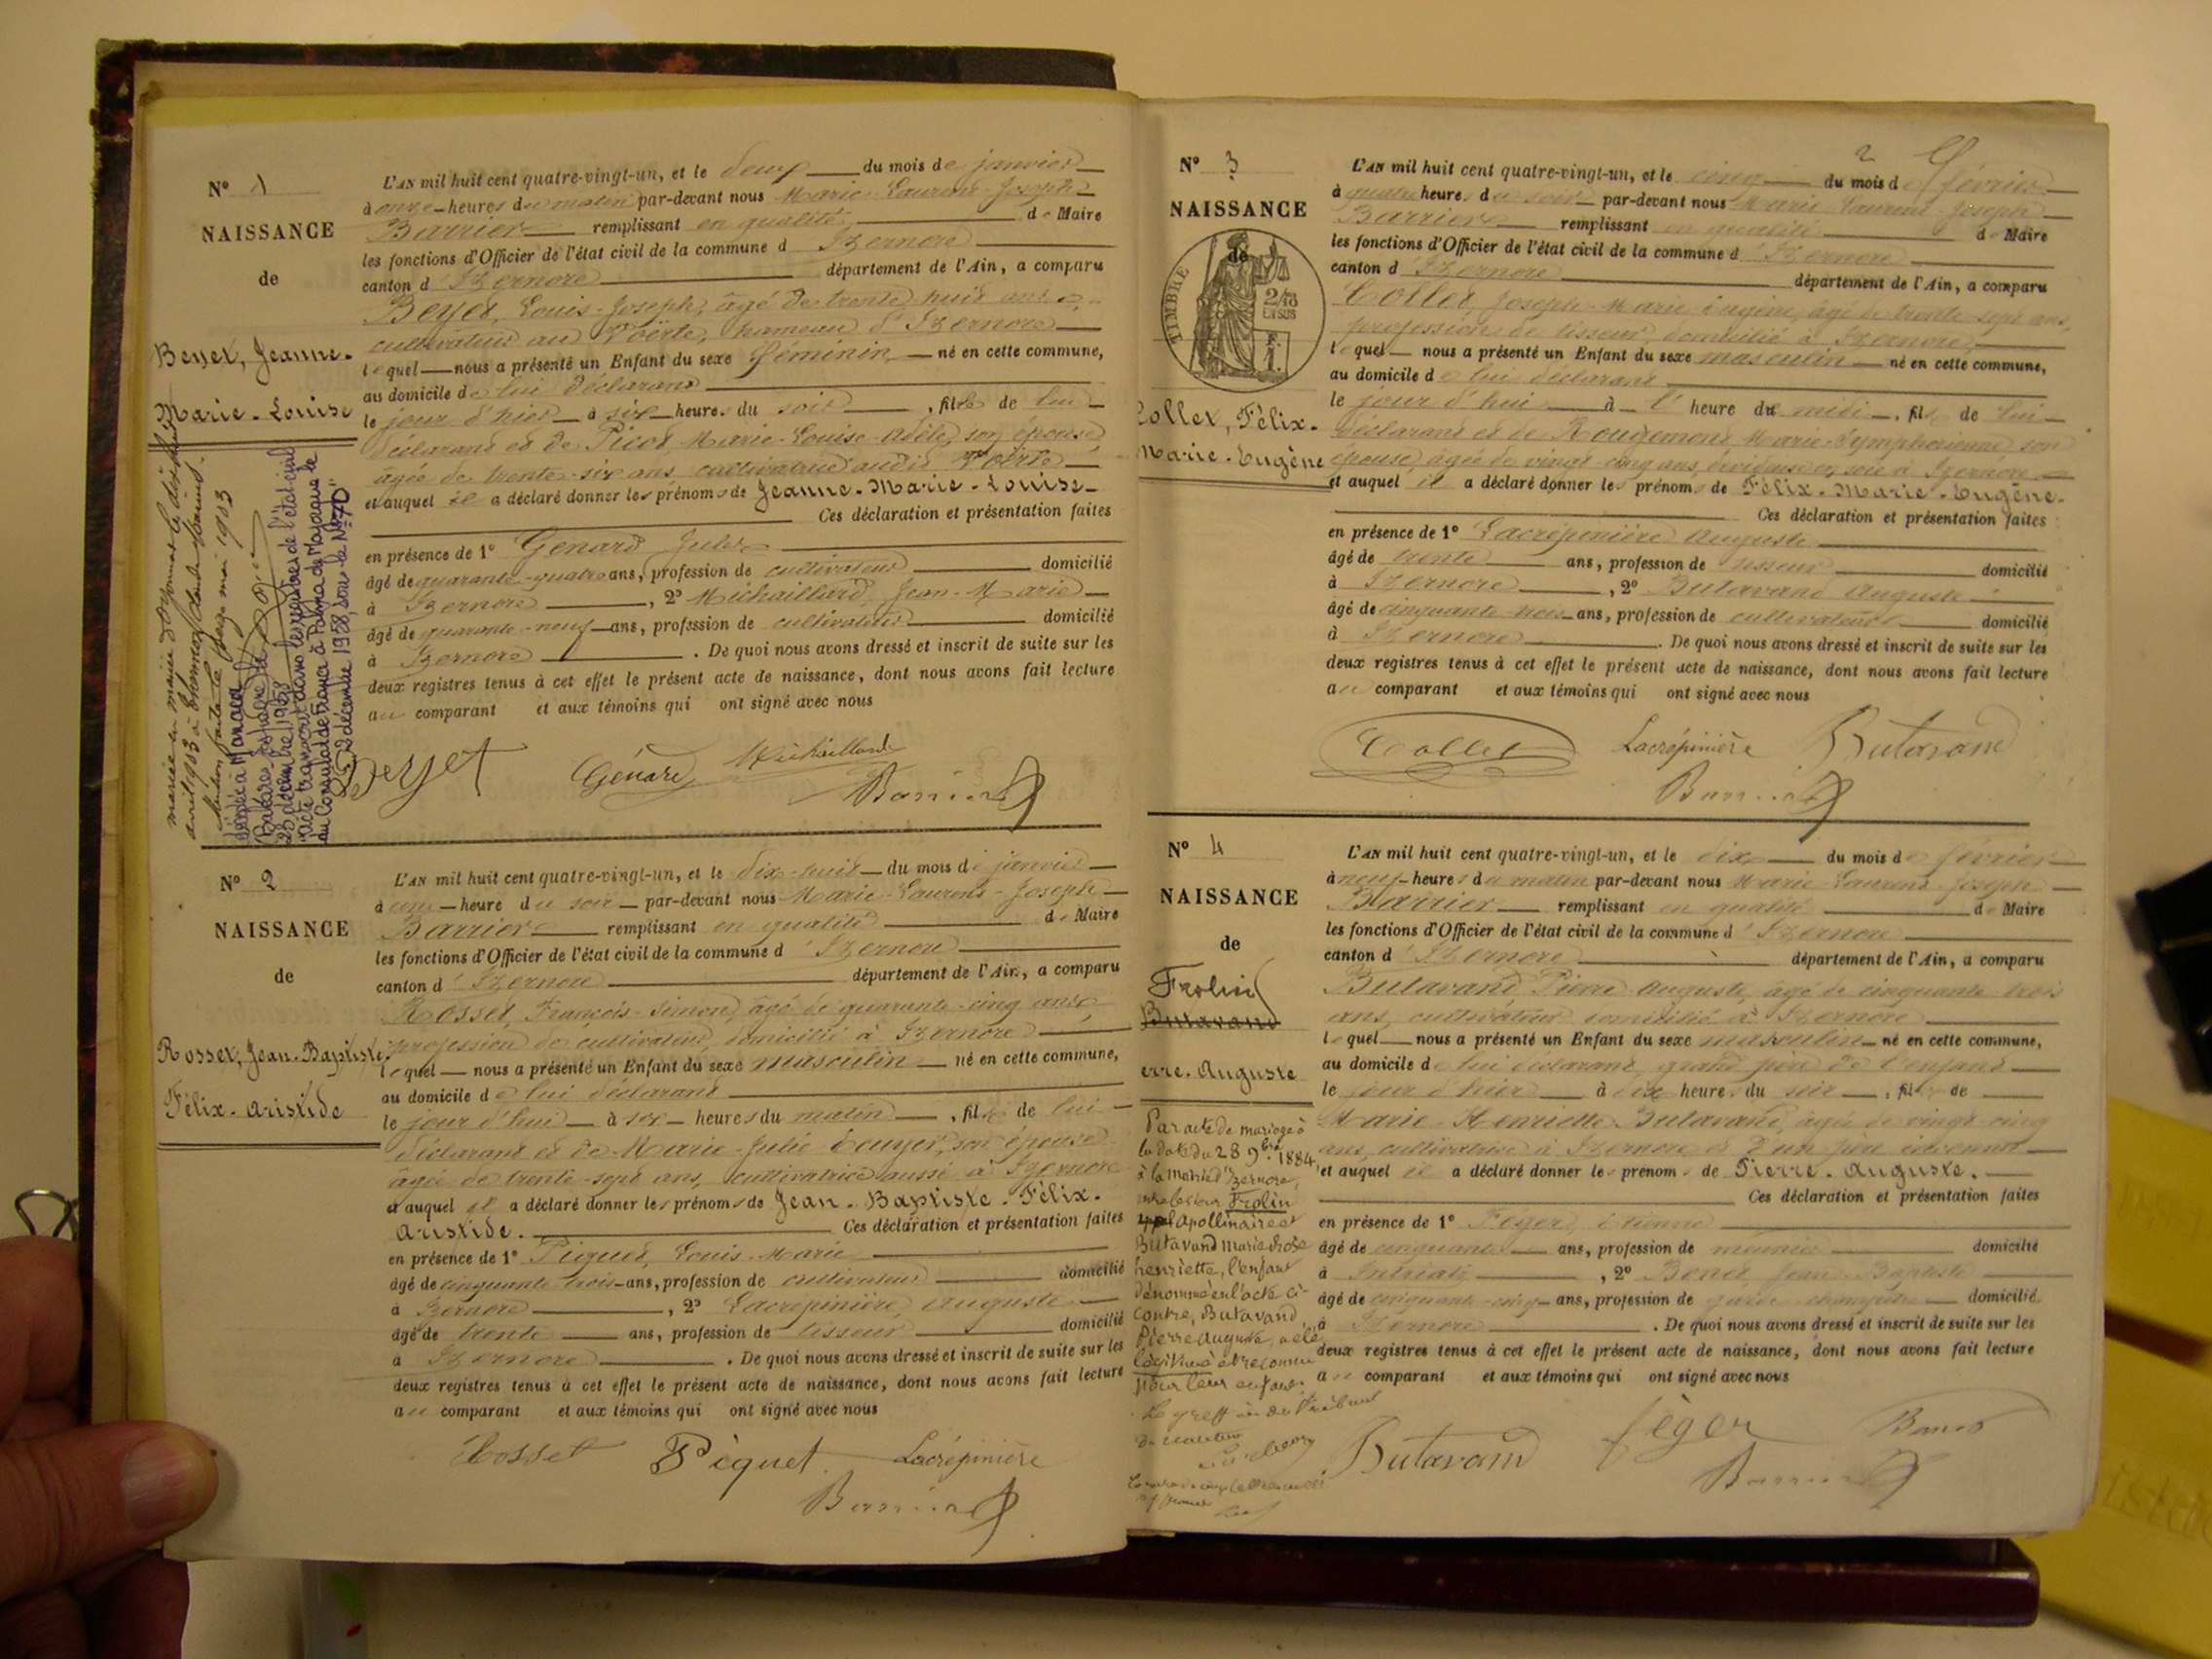 N° 1
NAISSANCE
de
Beyet, Jeanne-
Marie-Louise
L'AN mil huit cent quatre-vingt-un, et le deux du mois de janvier
à onze heures du matin par-devant nous Marie-Laurent-Joseph
Barrier remplissant en qualité de Maire
les fonctions d'Officier de l'état civil de la commune d'Izernore
canton d'Izernore département de l'Ain, a comparu
Beyet, Louis-Joseph, âgé de trente huit ans,
cultivateur au Voërle, hameau d'Izernore
lequel nous a présenté un Enfant du sexe féminin né en cette commune,
au domicile de lui déclarant
le jour d'hier à six heures du soir, fille de lui
déclarant et de Picot, Marie-Louise-Adèle, son épouse
âgée de trente-six ans, cultivatrice audit Voërle
et auquel il a déclaré donner les prénoms de Jeanne-Marie-Louise-
Ces déclaration et présentation faites
en présence de 1° Genard Jules
âgé de quarante-quatre ans, profession de cultivateur domicilié
à Izernore, 2° Michaillard, Jean-Marie
âgé de quarante-neuf ans, profession de cultivateur domicilié
à Izernore. De quoi nous avons dressé et inscrit de suite sur les
deux registres tenus à cet effet le présent acte de naissance, dont nous avons fait lecture
au comparant et aux témoins qui ont signé avec nous
Beyet Génard Michaillard
Barrier
mariée en mairie d'Oyonnax le dix huit
avril 1903 à
mai 1903
Décédée à Manacor
Baléares Espagne le
23 décembre 1958
acte transcrit dans les registres de l'état civil
au Consulat de France à Palma de Mayorque le
décembre 1958, sous le N° 70"
N° 2
NAISSANCE
de
Rosset, Jean-Baptiste
Félix-Aristide
L'AN mil huit cent quatre-vingt-un, et le dix-huit du mois de janvier
à une heure du soir par-devant nous Marie-Laurent-Joseph
Barrier remplissant en qualité de Maire
les fonctions d'Officier de l'état civil de la commune d'Izernore
canton d'Izernore département de l'Ain, a comparu
Rosset, François-Simon, âgé de quarante-cinq ans,
profession de cultivateur, domicilié à Izernore
lequel nous a présenté un Enfant du sexe masculin né en cette commune,
au domicile de lui déclarant
le jour d'hui à six heures du matin, fils de lui
déclarant et de Marie-Julie Touyer, son épouse
âgée de trente-sept ans, cultivatrice aussi à Izernore
et auquel il a déclaré donner les prénoms de Jean-Baptiste-Félix-
Aristide. Ces déclaration et présentation faites
en présence de 1° Piquet, Louis-Marie
âgé de cinquante trois ans, profession de cultivateur domicilié
à Izernore, 2° Lacrépinière Auguste
âgé de trente ans, profession de tisseur domicilié
à Izernore. De quoi nous avons dressé et inscrit de suite sur les
deux registres tenus à cet effet le présent acte de naissance, dont nous avons fait lecture
au comparant et aux témoins qui ont signé avec nous
Rosset Piquet Lacrépinière
Barrier
2
N° 3
NAISSANCE
de
TIMBRE
Collet, Félix-
Marie-Eugène
L'AN mil huit cent quatre-vingt-un, et le cinq du mois de février
à quatre heures du soir par-devant nous Marie Laurent-Joseph
Barrier remplissant en qualité de Maire
les fonctions d'Officier de l'état civil de la commune d'Izernore
canton d'Izernore département de l'Ain, a comparu
Collet, Joseph-Marie Eugène, âgé de trente-sept ans,
profession de tisseur domicilié à Izernore
lequel nous a présenté un Enfant du sexe masculin né en cette commune,
au domicile de lui déclarant
le jour d'hui à l'heure de midi, fils de lui
déclarant et de Rougemont, Marie-Symphorienne, son
épouse, âgée de vingt-cinq ans, dévideuse en soie à Izernore
et auquel il a déclaré donner les prénoms de Félix-Marie-Eugène.
Ces déclaration et présentation faites
en présence de 1° Lacrépinière Auguste
âgé de trente ans, profession de tisseur domicilié
à Izernore, 2° Butavand Auguste
âgé de cinquante trois ans, profession de cultivateur domicilié
à Izernore. De quoi nous avons dressé et inscrit de suite sur les
deux registres tenus à cet effet le présent acte de naissance, dont nous avons fait lecture
au comparant et aux témoins qui ont signé avec nous
Collet Lacrépinière Butavand
Barrier
N° 4
NAISSANCE
de
Frolin
Butavand
erre-Auguste
L'AN mil huit cent quatre-vingt-un, et le dix du mois de février
à neuf heures du matin par-devant nous Marie Laurent Joseph
Barrier remplissant en qualité de Maire
les fonctions d'Officier de l'état civil de la commune d'Izernore
canton d'Izernore département de l'Ain, a comparu
Butavand Pierre Auguste, âgé de cinquante trois
ans, cultivateur domicilié à Izernore
lequel nous a présenté un Enfant du sexe masculin né en cette commune,
au domicile de lui déclarant, grand père de l'enfant
le jour d'hier à dix heures du soir, fils de
Marie-Henriette Butavand, âgée de vingt-cinq
ans, cultivatrice à Izernore et d'un père inconnu
et auquel il a déclaré donner les prénoms de Pierre-Auguste.
Ces déclaration et présentation faites
en présence de 1° Féger Etienne
âgé de cinquante ans, profession de meunier domicilié
à Intriat, 2° Benet, Jean-Baptiste
âgé de cinquante-cinq ans, profession de garde-champêtre domicilié
à Izernore. De quoi nous avons dressé et inscrit de suite sur les
deux registres tenus à cet effet le présent acte de naissance, dont nous avons fait lecture
au comparant et aux témoins qui ont signé avec nous
Butavand féger
Barrier
Par acte de mariage à
la date du 28 9bre 1884
à la mairie d'Izernore,
entre les Frolin
Apollinaire et
Butavand Marie Rose
henriette, l'enfant
dénommé en l'acte ci-
contre, Butavand,
Pierre Auguste, a été
légitimé et reconnu
pour leur enfant.
Le greffier du Tribunal
de Nantua